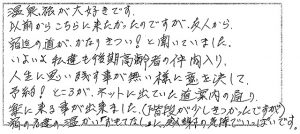 温泉旅が大好きです。
以前からこちらに来たかったのですが、友人から、
宿迄の道が、かなりきつい！と聞いていました。
いよいよ私達も後期高齢者の仲間入り、
人生に思い残す事が無い様にと意を決して、
予約！ところが、ネットに出ていた道案内の通り
楽に来る事が出来ました。（階段が少しきつかったですが）
宿の方達の温かい「おもてなし」に、感謝の気持でいっぱいです。